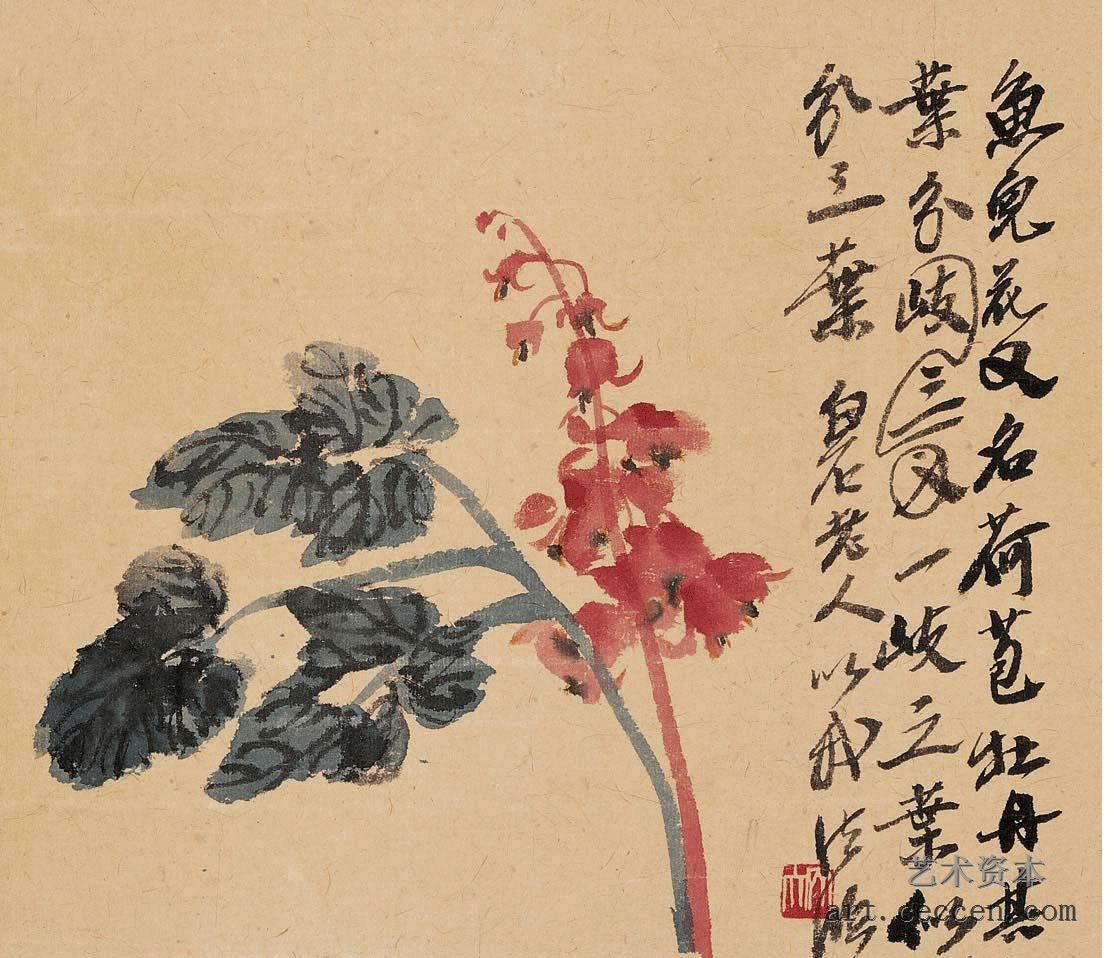 魚兒花又名荷苞牡丹其
葉分歧三叉一歧之葉似
分三葉 白石老人以我法
艺术资本
art.ceccen.com